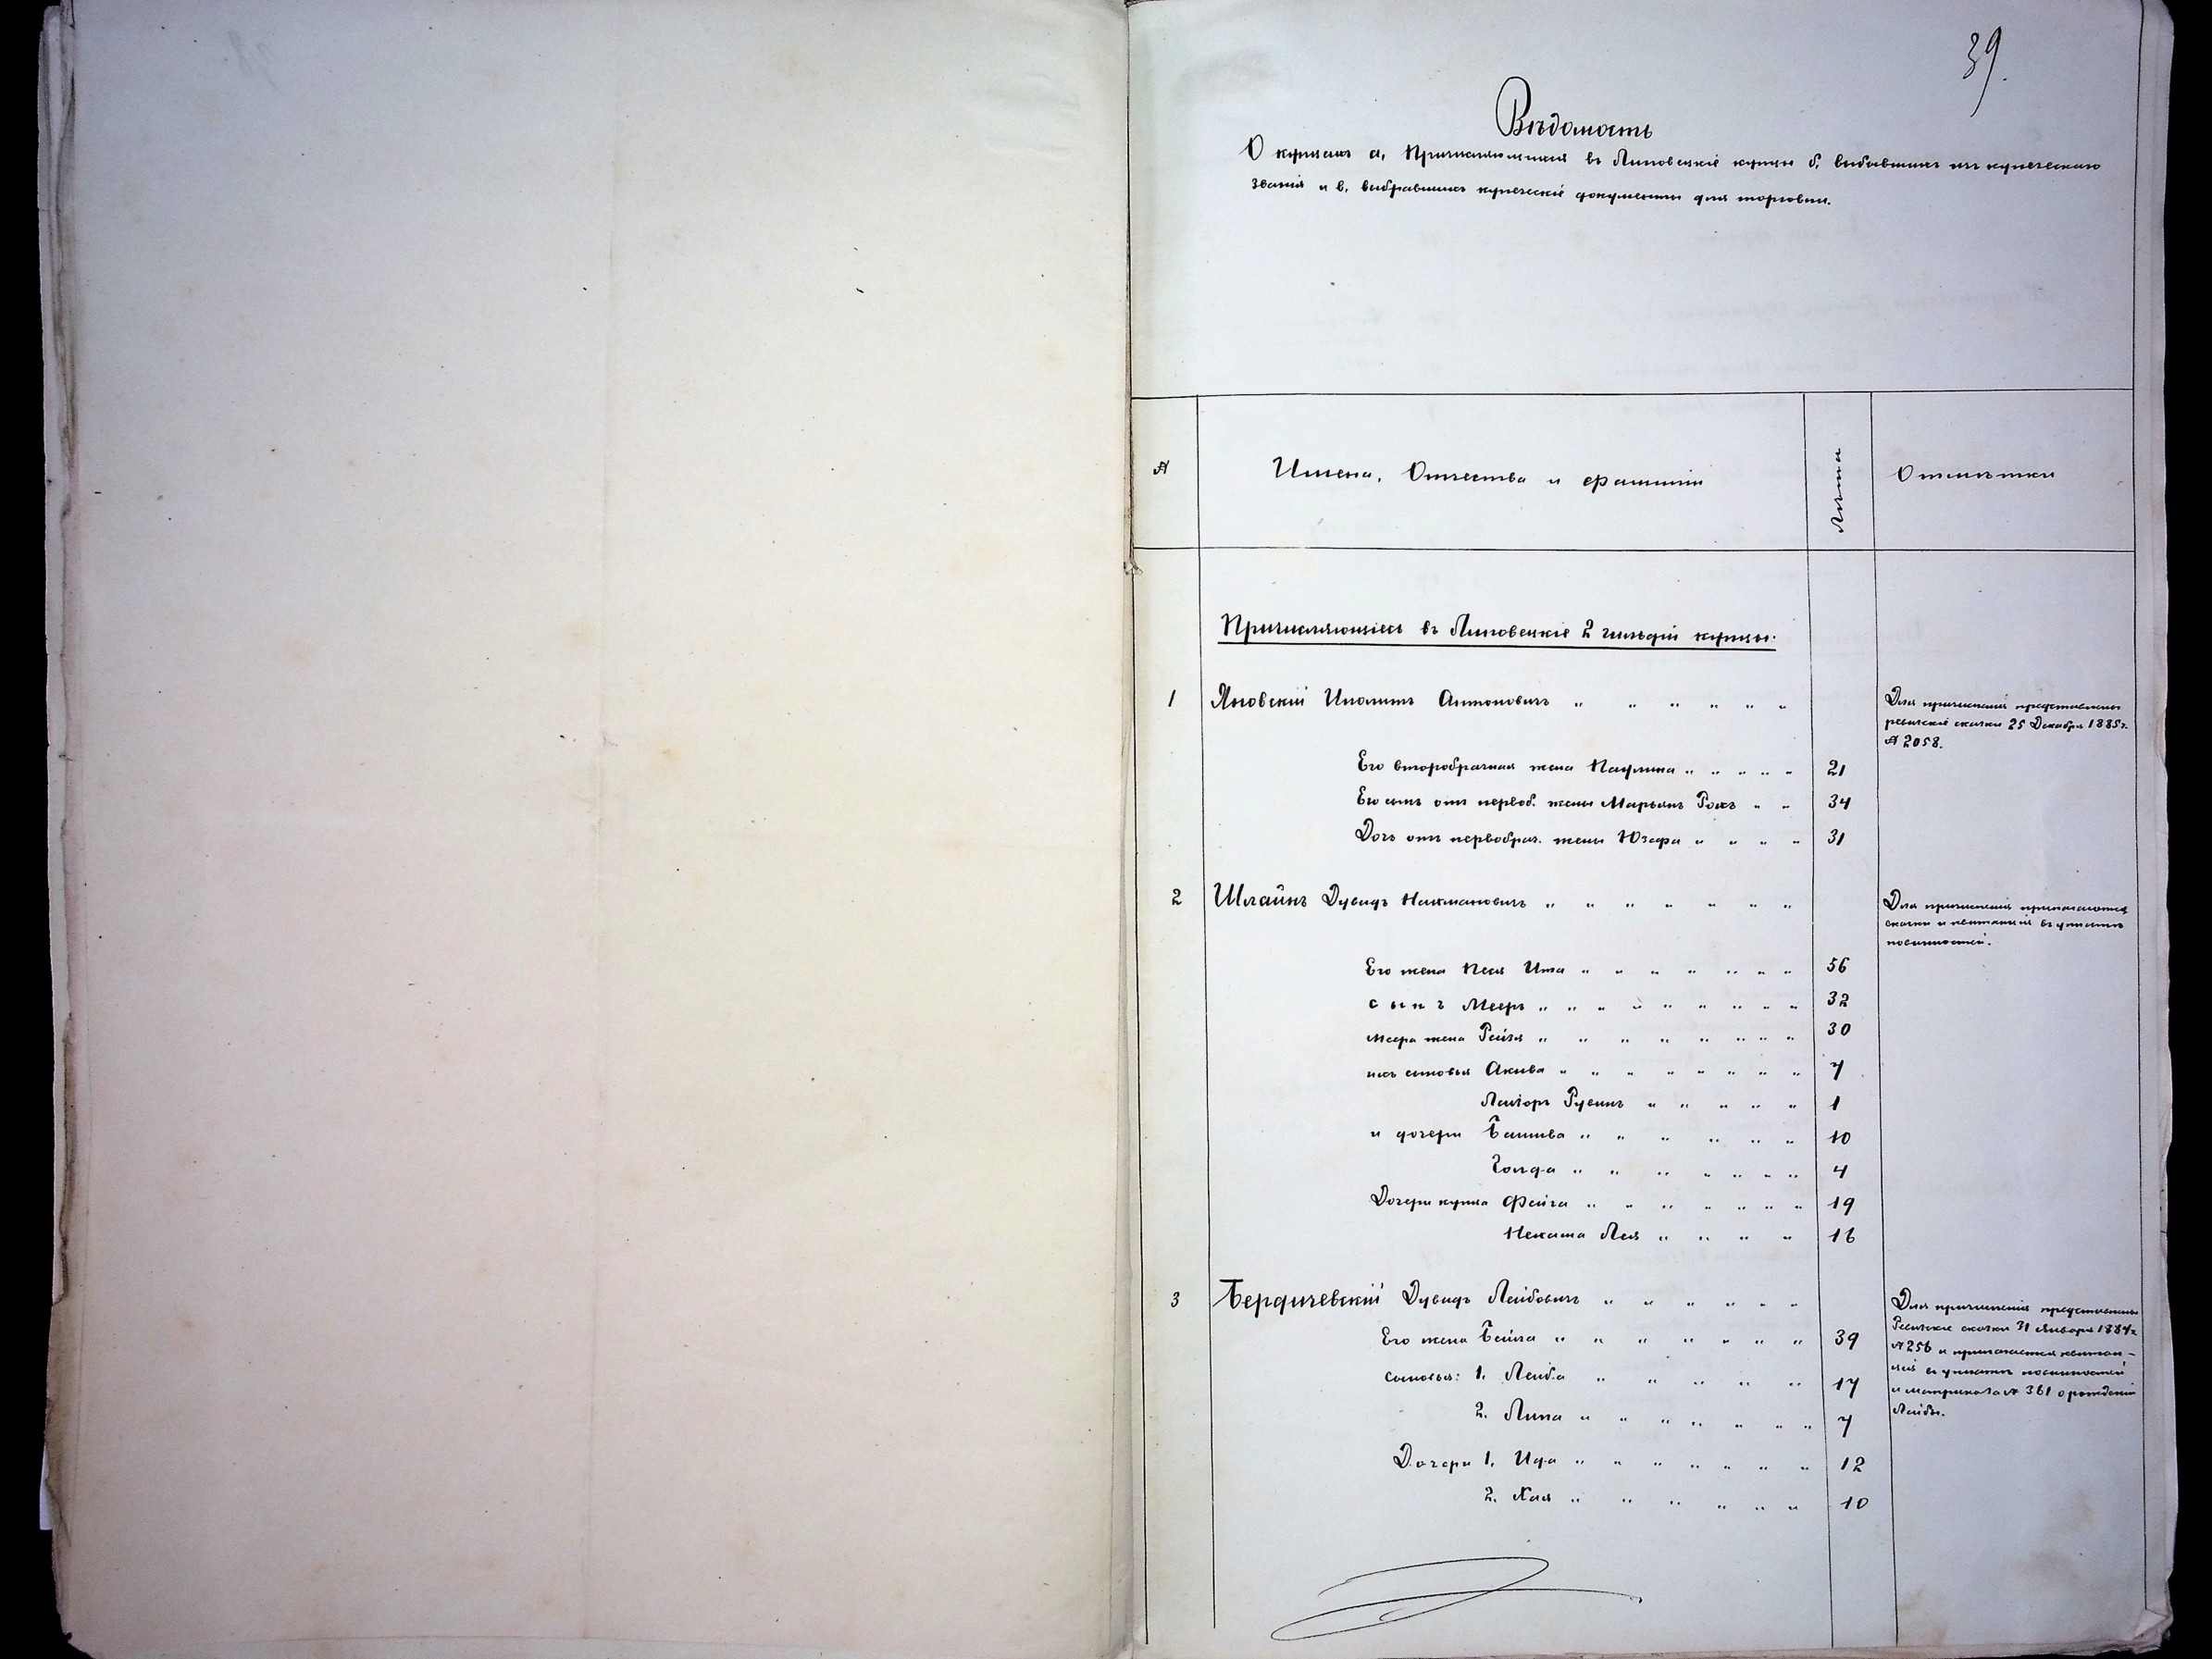 39.
Вѣдомость
О купцахъ а, Причисляющихся въ Липовецкіе купцы б, выбывшихъ изъ купеческаго
званія и в, выбравшихъ купеческіе документы для торговли.
№
Имена, Отчества и фамиліи
Лѣта
Отмѣтки
Причисляющіеся въ Липовецкіе 2 гильдіи купцы.
1 Яновскій Иполитъ Антоновичъ " " " " " "
Для причисленія представлены
ревизскіе сказки 25 Декабря 1885 г.
№ 2058.
Его второбрачная жена Паулина " " " " " 21
Его сынъ отъ первоб. жены Марьянъ Рохъ " " 34
Дочь отъ первобрач. жены Юзефа " " " " 31
2 Шлайнъ Дувидъ Нахмановичъ " " " " " " "
Для причисленія прилагаются
сказки и квитанція въ уплатѣ
повинностей.
Его жена Песя Ита " " " " " " " 56
сынъ Мееръ " " " " " " " " " 32
Меера жена Рейзя " " " " " " " " 30
ихъ сыновья Акива " " " " " " " " 7
Лейзоръ Рувинъ " " " " " 1
и дочери Башива " " " " " " 10
Голда " " " " " " " 4
Дочери купца Фейга " " " " " " " 19
Нехама Лея " " " " 16
3 Бердичевскій Дувидъ Лейбовичъ " " " " " "
Для причисленія представлены
Ревизскіе сказки 31 Января 1887 г.
№ 256 и прилагается квитан-
ція въ уплатѣ повинностей
и метрика за № 361 о рожденіи
Лейбы.
Его жена Бейла " " " " " " " 39
Сыновья: 1. Лейба " " " " " 17
2. Липа " " " " " " " 7
Дочери 1. Ида " " " " " " " 12
2. Хая " " " " " " 10